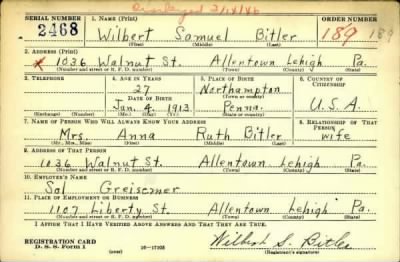 Discharged 2/14/46
SERIAL NUMBER 1. NAME (Print) ORDER NUMBER
2468 Wilbert Samuel Bitler 189 189
(First) (Middle) (Last)
2. ADDRESS (Print)
x 1036 Walnut St. Allentown Lehigh Pa.
(Number and street or R. F. D. number) (Town) (County) (State)
3. TELEPHONE 4. AGE IN YEARS 5. PLACE OF BIRTH 6. COUNTRY OF CITIZENSHIP
27 Northampton
DATE OF BIRTH (Town or county)
Jan. 4, 1913 Penna. U.S.A.
(Exchange) (Number) (Mo.) (Day) (Yr.) (State or country)
7. NAME OF PERSON WHO WILL ALWAYS KNOW YOUR ADDRESS 8. RELATIONSHIP OF THAT PERSON
Mrs. Anna Ruth Bitler wife
(Mr., Mrs., Miss) (First) (Middle) (Last)
9. ADDRESS OF THAT PERSON
1036 Walnut St. Allentown Lehigh Pa.
(Number and street or R. F. D. number) (Town) (County) (State)
10. EMPLOYER'S NAME
Sol Greisemer
11. PLACE OF EMPLOYMENT OR BUSINESS
1107 Liberty St Allentown Lehigh Pa.
(Number and street or R. F. D. number) (Town) (County) (State)
I AFFIRM THAT I HAVE VERIFIED ABOVE ANSWERS AND THAT THEY ARE TRUE.
REGISTRATION CARD
D. S. S. Form 1 (over) 16—17105 Wilbert S. Bitler
(Registrant's signature)